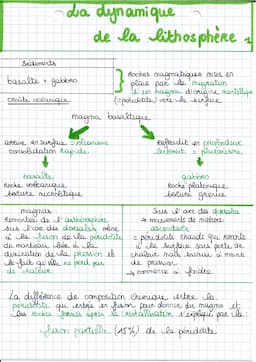 La dynamique
de la lithosphère 1
sédiments
basalte + gabbro
croûte océanique
Roches magmatiques mises en
place par la migration
d'un magma d'origine mantellique
(= péridotite) vers la surface
magma basaltique
arrive en surface = volcanisme
consolidation rapide
Refroidit en profondeur
lentement = plutonisme
basalte
roche volcanique
texture microlitique
gabbro
roche plutonique
texture grenue
magmas
Remontée de l'asthénosphère
sur l'axe des dorsales mène
à la fusion de la péridotite
du manteau liée à la
diminution de la pression et
le fait qu'elle ne perd pas
de chaleur
Sous l'axe des dorsales
→ mouvements de matière
ascendants
= péridotite chaude qui remonte
à la surface sans perte de
chaleur mais subit moins
de pression
→ commence à fondre
La différence de composition chimique entre la
péridotite qui entre en fusion pour donner du magma et
les roches formées après la cristallisation s'explique par la
fusion partielle (15%) de la péridotite.